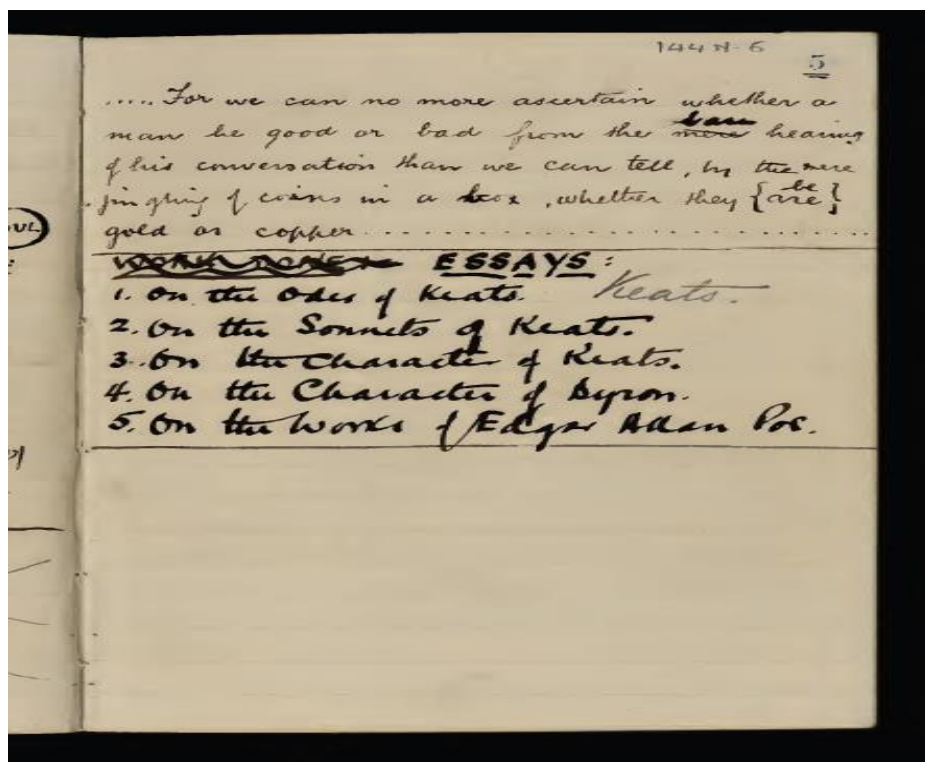 144N-6
5
..... For we can no more ascertain whether a
man be good or bad from the mere bare hearing
of his conversation than we can tell, by the mere
jingling of coins in a box, whether they {are be}
gold or copper..............................
ESSAYS:
1. On the Odes of Keats. Keats.
2. On the Sonnets of Keats.
3. On the Character of Keats.
4. On the Character of Byron.
5. On the Works of Edgar Allan Poe.